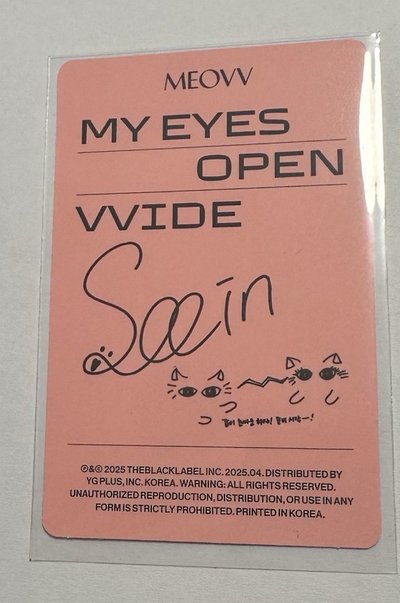 MEOVV
MY EYES
OPEN
VVIDE
Sooin
같이 눈싸움 하자! 준비 시작~!
℗&© 2025 THEBLACKLABEL INC. 2025.04. DISTRIBUTED BY
YG PLUS, INC. KOREA. WARNING: ALL RIGHTS RESERVED.
UNAUTHORIZED REPRODUCTION, DISTRIBUTION, OR USE IN ANY
FORM IS STRICTLY PROHIBITED. PRINTED IN KOREA.